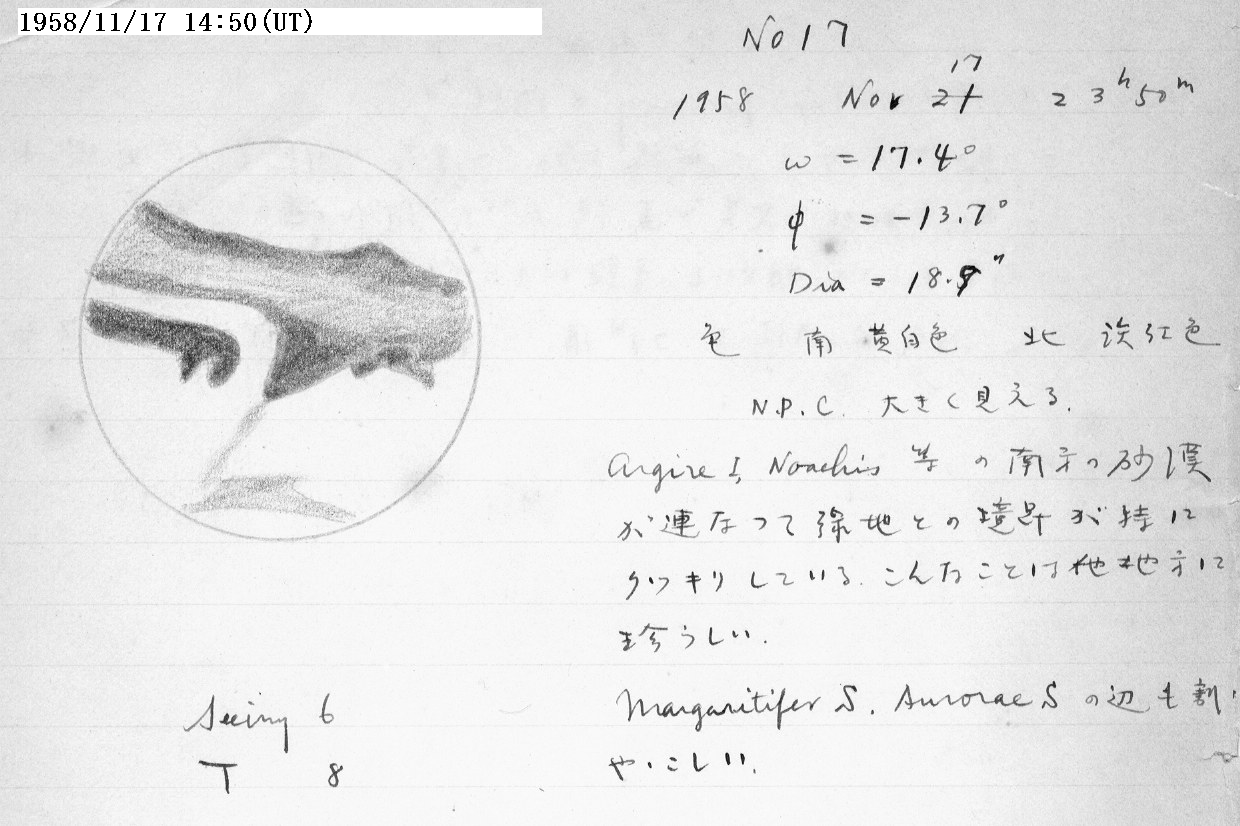 1958/11/17 14:50(UT)
No 17
17
1958 Nov 21 23h50m
ω = 17.4°
φ = -13.7°
Dia = 18.9"
色 南 黄白色 北 淡紅色
N.P.C. 大きく見える.
Argire I, Noachis 等の南方の砂漠
が連なつて緑地との境界が特に
クッキリしている. こんなことは他地方に
珍らしい.
Margaritifer S. Aurorae S の辺も割
やゝこしい.
Seeing 6
T 8